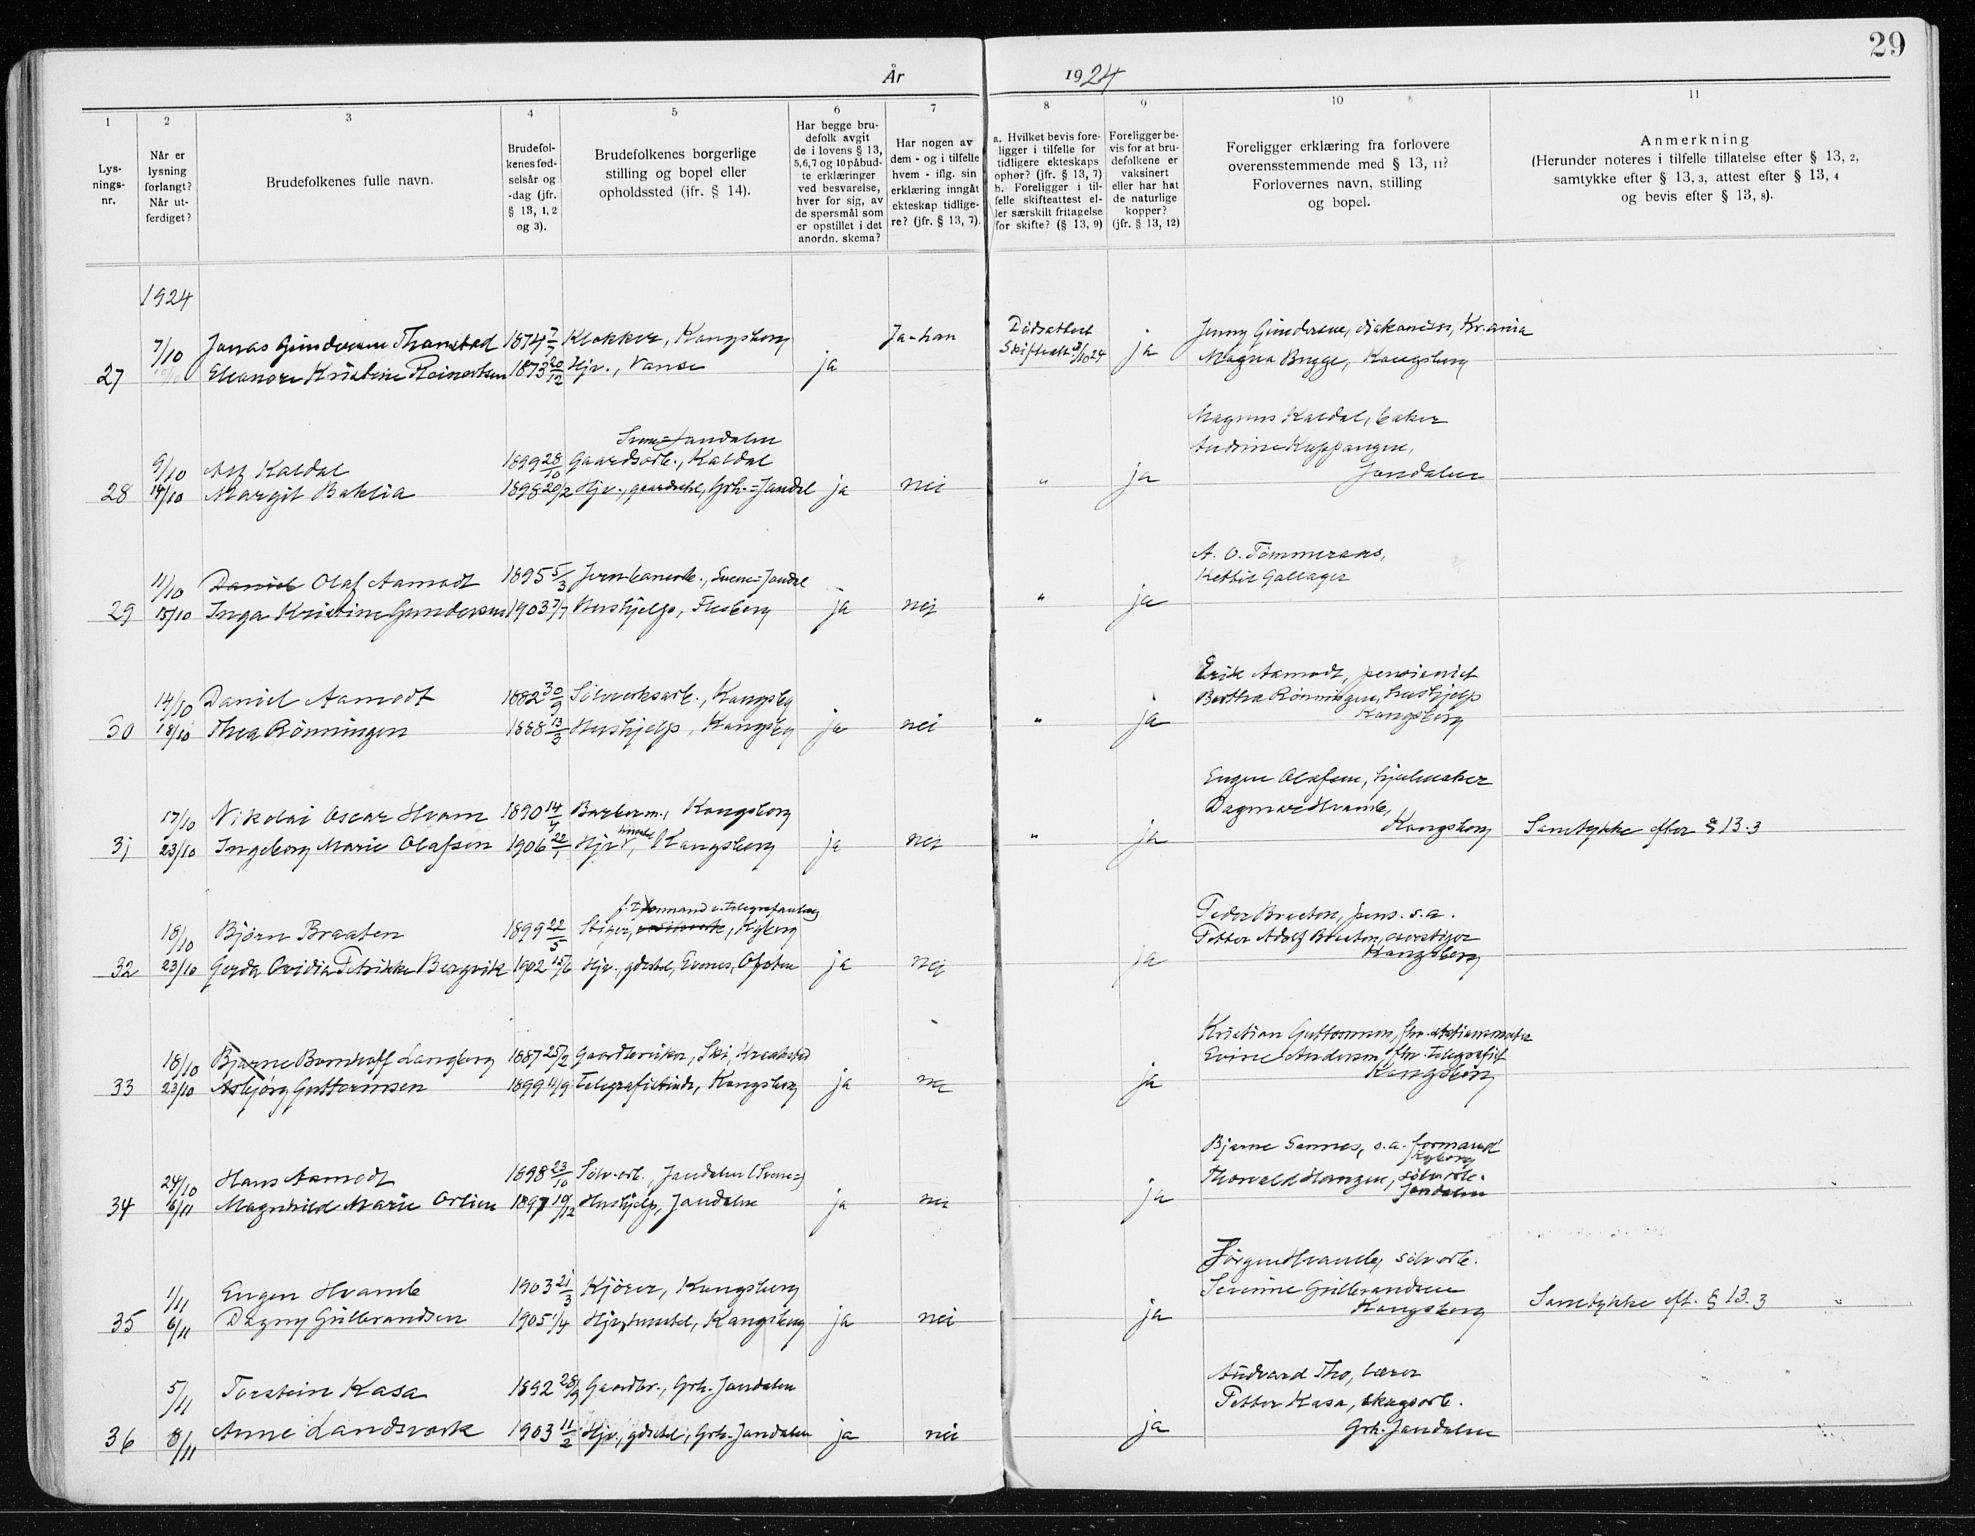 29
År 1924
1 2 3 4 5 6 7 8 9 10 11
Lys-
nings-
nr.
Når er
lysning
forlangt?
Når ut-
ferdiget?
Brudefolkenes fulle navn.
Brudefol-
kenes fød-
selsår og
-dag (jfr.
§ 13, 1, 2
og 3).
Brudefolkenes borgerlige
stilling og bopel eller
opholdssted (jfr. § 14).
Har begge bru-
defolk avgit
de i lovens § 13,
5,6,7 og 10 påbud-
te erklæringer
ved besvarelse,
hver for sig, av
de spørsmål som
er opstillet i det
anordn. skema?
Har nogen av
dem - og i tilfelle
hvem - iflg. sin
erklæring inngått
ekteskap tidlige-
re? (jfr. § 13, 7).
a. Hvilket bevis fore-
ligger i tilfelle for
tidligere ekteskaps
ophør? (jfr. § 13, 7)
b. Foreligger i til-
felle skifteattest el-
ler særskilt fritagelse
for skifte? (§ 13, 9)
Foreligger be-
vis for at bru-
defolkene er
vaksinert
eller har hat
de naturlige
kopper?
(jfr. § 13, 12)
Foreligger erklæring fra forlovere
overensstemmende med § 13, 11?
Forlovernes navn, stilling
og bopel.
Anmerkning
(Herunder noteres i tilfelle tillatelse efter § 13, 2,
samtykke efter § 13, 3, attest efter § 13, 4
og bevis efter § 13, 8).
1924
7/10 Jonas Gundersen Thorstad 1874 7/7 Klokker, Kongsberg Ja - han Dødsattest Jenny Gundersen, diakonisse, Kr.ania
27 Eleanore Kristine Reinertsen 1873 20/12 Hjv., Vanse ja Skifteatt. 3/10 24 ja Magna Brygge, Kongsberg
Magnus Kaldal, baker
Svene=Jondalen Andrine Kuppangen,
9/10 Alf Kaldal 1899 28/10 Gaardsarb., Kaldal Jondalen
28 14/10 Margit Baklia 1898 20/2 Hjv., gaardstel, Grh.=Jondal ja nei " ja
A. O. Tømmeraas,
11/10 Daniel Olaf Aamodt 1895 5/3 Jernbanearb., Svene=Jondal Kettil Gallager
29 15/10 Inga Kristine Gundersen 1903 7/7 Hushjelp, Flesberg ja nei " ja
Erik Aamodt, pensionist
14/10 Daniel Aamodt 1882 30/9 Sølvverksarb., Kongsbg Bertha Rønningen, hushjelp
30 18/10 Thea Rønningen 1888 13/3 Hushjelp, Kongsbg ja nei " ja Kongsberg
Eugen Olafsen, hjulmaker
17/10 Nikolai Oscar Hvam 1890 14/4 Barberm., Kongsberg Dagmar Hvamb,
31 23/10 Ingeborg Marie Olafsen 1906 22/1 Hjv, Kongsberg ja nei " ja Kongsberg Samtykke efter § 13.3
Peder Braaten, pens. s.a.
18/10 Bjørn Braaten 1899 22/5 Stiger, Kgberg Petter Adolf Braaten, overstiger
32 23/10 Gerda Ovidia Petrikke Bergvik 1902 15/6 Hjv., gdsstel, Evenes, Ofoten ja nei ja Kongsberg
Kristian Guttormsen, fhv. stationsmester
18/10 Bjarne Berntoff Langberg 1887 25/2 Gaardbruker, Ski, Kraakstad Evine Andersen, fhv. telegrafist
33 23/10 Asbjørg Guttormsen 1899 4/9 Telegrafistinde, Kongsberg ja nei ja Kongsberg
Bjarne Sannes, s.a. formand
24/10 Hans Aamodt 1898 23/10 Sølv.arb., Jondalen (Svene=) Kgberg
Thorvald Hangen, sølv.arb.
34 6/11 Magnhild Marie Orlien 1897 19/12 Hushjelp, Jondalen ja nei ja Jondalen
Jørgen Hvamb, sølv.arb.
1/11 Eugen Hvamb 1903 21/3 Kjører, Kongsberg Severine Gulbrandsen
35 6/11 Dagny Gulbrandsen 1905 1/4 Hjv, husstel, Kongsberg ja nei ja Kongsberg Samtykke eft. § 13.3
Andvard Tho, lærer
5/11 Torstein Kasa 1892 28/9 Gaardbr., Grh. Jondalen Petter Kasa, skogsarb.
36 8/11 Anne Landsverk 1903 11/2 Hjv., gdsstel, Grh. Jondalen ja nei ja Grh. Jondalen